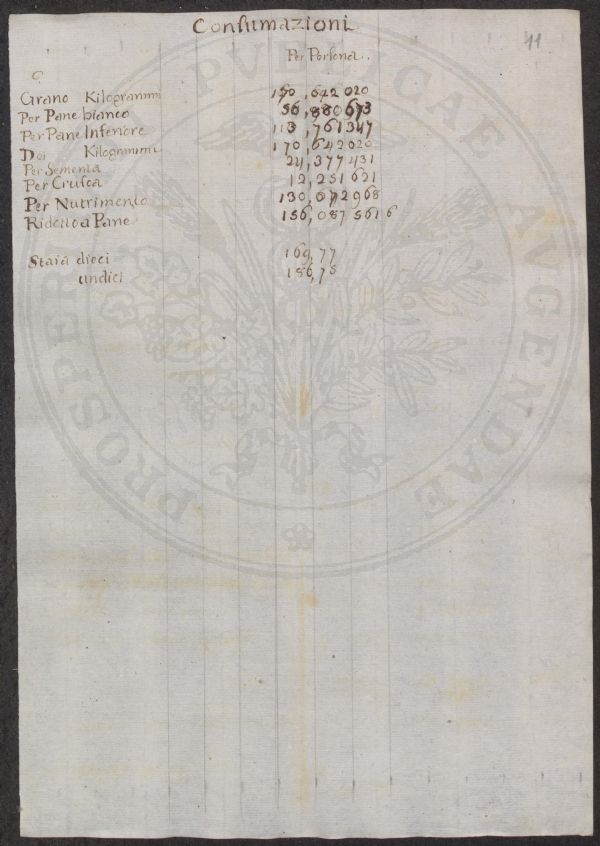 Consumazioni
11
Per Persona.
Grano Kilogrammi 170,642 020
Per Pane bianco 56,880 673
Per Pane Inferiore 113,761 347
Dei Kilogrammi 170,642 020
Per Sementa 24,377 431
Per Crusca 12,251 621
Per Nutrimento 130,672 968
Ridotto a Pane 156,087 561 6
Staia dieci 169,77
undici 186,75
PROSPERITATI PVBLICAE AVGENDAE